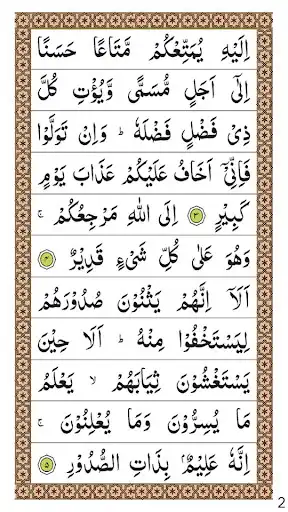 اِلَيْهِ يُمَتِّعْكُمْ مَّتَاعًا حَسَنًا
اِلٰٓى اَجَلٍ مُّسَمًّى وَّيُؤْتِ كُلَّ
ذِىْ فَضْلٍ فَضْلَهٗ ؕ وَاِنْ تَوَلَّوْا
فَاِنِّىْٓ اَخَافُ عَلَيْكُمْ عَذَابَ يَوْمٍ
كَبِيْرٍ ﴿۳﴾ اِلَى اللّٰهِ مَرْجِعُكُمْ ۚ
وَهُوَ عَلٰى كُلِّ شَىْءٍ قَدِيْرٌ ﴿۴﴾
اَلَاۤ اِنَّهُمْ يَثْنُوْنَ صُدُوْرَهُمْ
لِيَسْتَخْفُوْا مِنْهُ ؕ اَلَا حِيْنَ
يَسْتَغْشُوْنَ ثِيَابَهُمْ ۙ يَعْلَمُ
مَا يُسِرُّوْنَ وَمَا يُعْلِنُوْنَ ۚ
اِنَّهٗ عَلِيْمٌۢ بِذَاتِ الصُّدُوْرِ ﴿۵﴾
2